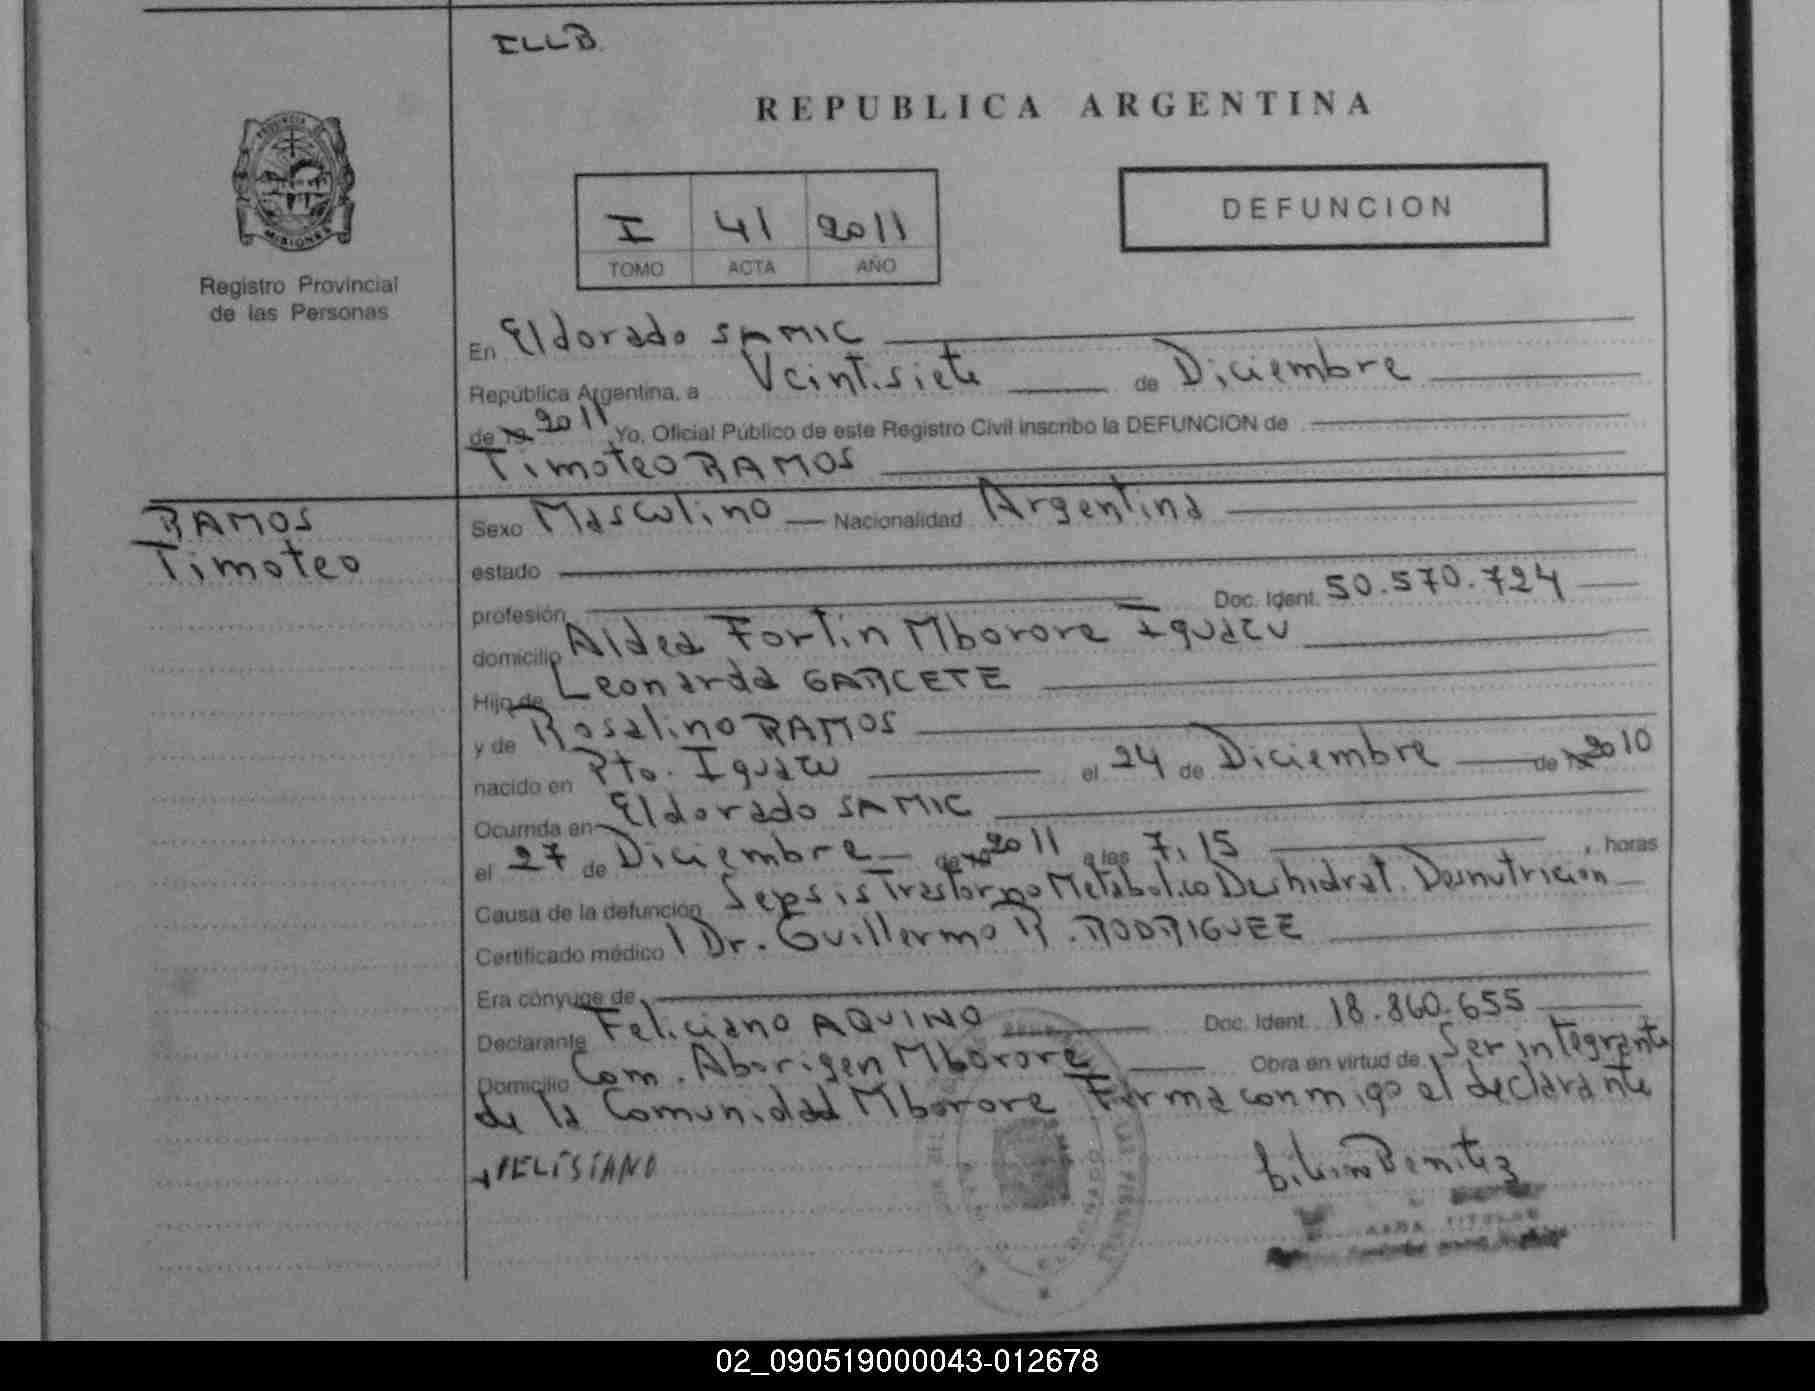 ILLB.
REPUBLICA ARGENTINA
PROVINCIA DE
MISIONES
Registro Provincial
de las Personas
I 41 2011
TOMO ACTA AÑO
DEFUNCION
En Eldorado SAMIC
República Argentina, a Veintisiete de Diciembre
de 19 2011 Yo, Oficial Público de este Registro Civil inscribo la DEFUNCION de
Timoteo RAMOS
RAMOS
Timoteo
Sexo Masculino Nacionalidad Argentina
estado
profesión Doc. Ident. 50.570.724
domicilio Aldea Fortin Mborore Iguazu
Hijo de Leonarda GARCETE
y de Rosalino RAMOS
nacido en Pto. Iguazu el 24 de Diciembre de 19 2010
Ocurrida en Eldorado SAMIC
el 27 de Diciembre de 19 2011 a las 7,15 , horas
Causa de la defunción Sepsis Trastorno Metabolico Deshidrat. Desnutrición
Certificado médico Dr. Guillermo R. RODRIGUEZ
Era cónyuge de
Declarante Feliciano AQUINO Doc. Ident. 18.860.655
Domicilio Com. Aborigen Mborore Obra en virtud de Ser integrante
de la Comunidad Mborore Firma conmigo el declarante
FELISIANO
Benitez
02_090519000043-012678